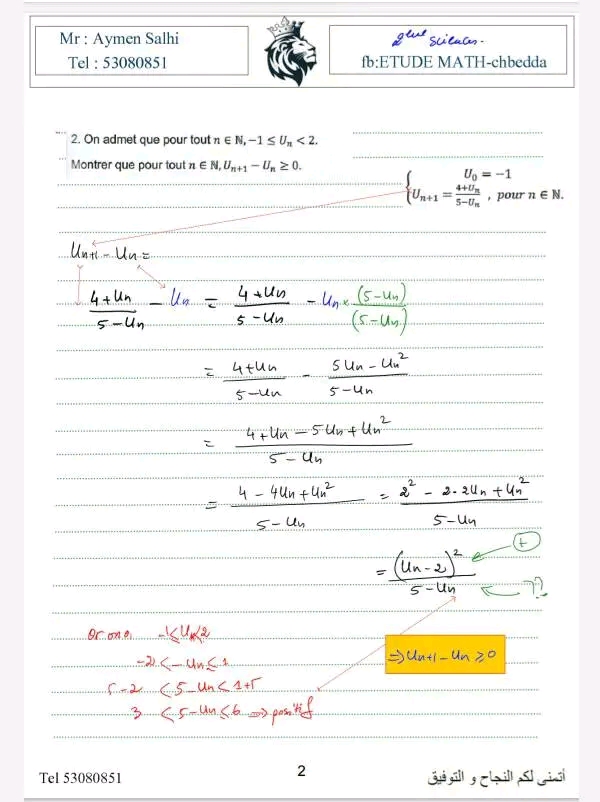 Mr : Aymen Salhi
Tel : 53080851
2ème Sciences.
fb:ETUDE MATH-chbedda
2. On admet que pour tout n ∈ ℕ, −1 ≤ Uₙ < 2.
Montrer que pour tout n ∈ ℕ, Uₙ₊₁ − Uₙ ≥ 0.
{ U₀ = −1
Uₙ₊₁ = (4+Uₙ)/(5−Uₙ) , pour n ∈ ℕ.
Un+1 − Un =
(4+Un)/(5−Un) − Un = (4+Un)/(5−Un) − Un × (5−Un)/(5−Un)
= (4+Un)/(5−Un) − (5Un − Un²)/(5−Un)
= (4+Un − 5Un + Un²)/(5−Un)
= (4 − 4Un + Un²)/(5−Un) = (2² − 2·2Un + Un²)/(5−Un)
= (Un − 2)²/(5−Un)
+
??
Or on a, −1 ≤ Un < 2
−2 < −Un ≤ 1
5−2 < 5−Un < 1+5
3 < 5−Un ≤ 6 ⇒ positif
⇒ Un+1 − Un ≥ 0
Tel 53080851
2
أتمنى لكم النجاح و التوفيق